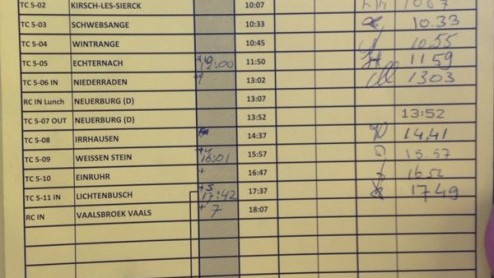 TC 5-02 KIRSCH-LES-SIERCK 10:07
TC 5-03 SCHWEBSANGE 10:33 10.33
TC 5-04 WINTRANGE 10:45 10.55
TC 5-05 ECHTERNACH 11:50 1159
TC 5-06 IN NIEDERRADEN 13:02 1303
RC IN Lunch NEUERBURG (D) 13:07
TC 5-07 OUT NEUERBURG (D) 13:52 13:52
TC 5-08 IRRHAUSEN 14:37 14.41
TC 5-09 WEISSEN STEIN 16:01 15:57 15.57
TC 5-10 EINRUHR 16:47
TC 5-11 IN LICHTENBUSCH 17:42 17:37 1749
RC IN VAALSBROEK VAALS +7 18:07